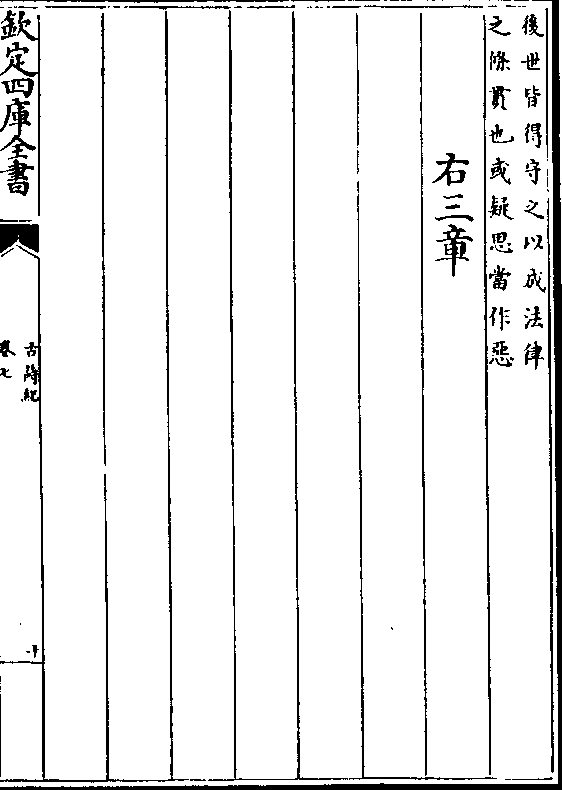 後世皆得守之以成法律
之條貫也或疑思當作惡
右三章
欽定四庫全書
卷七
十